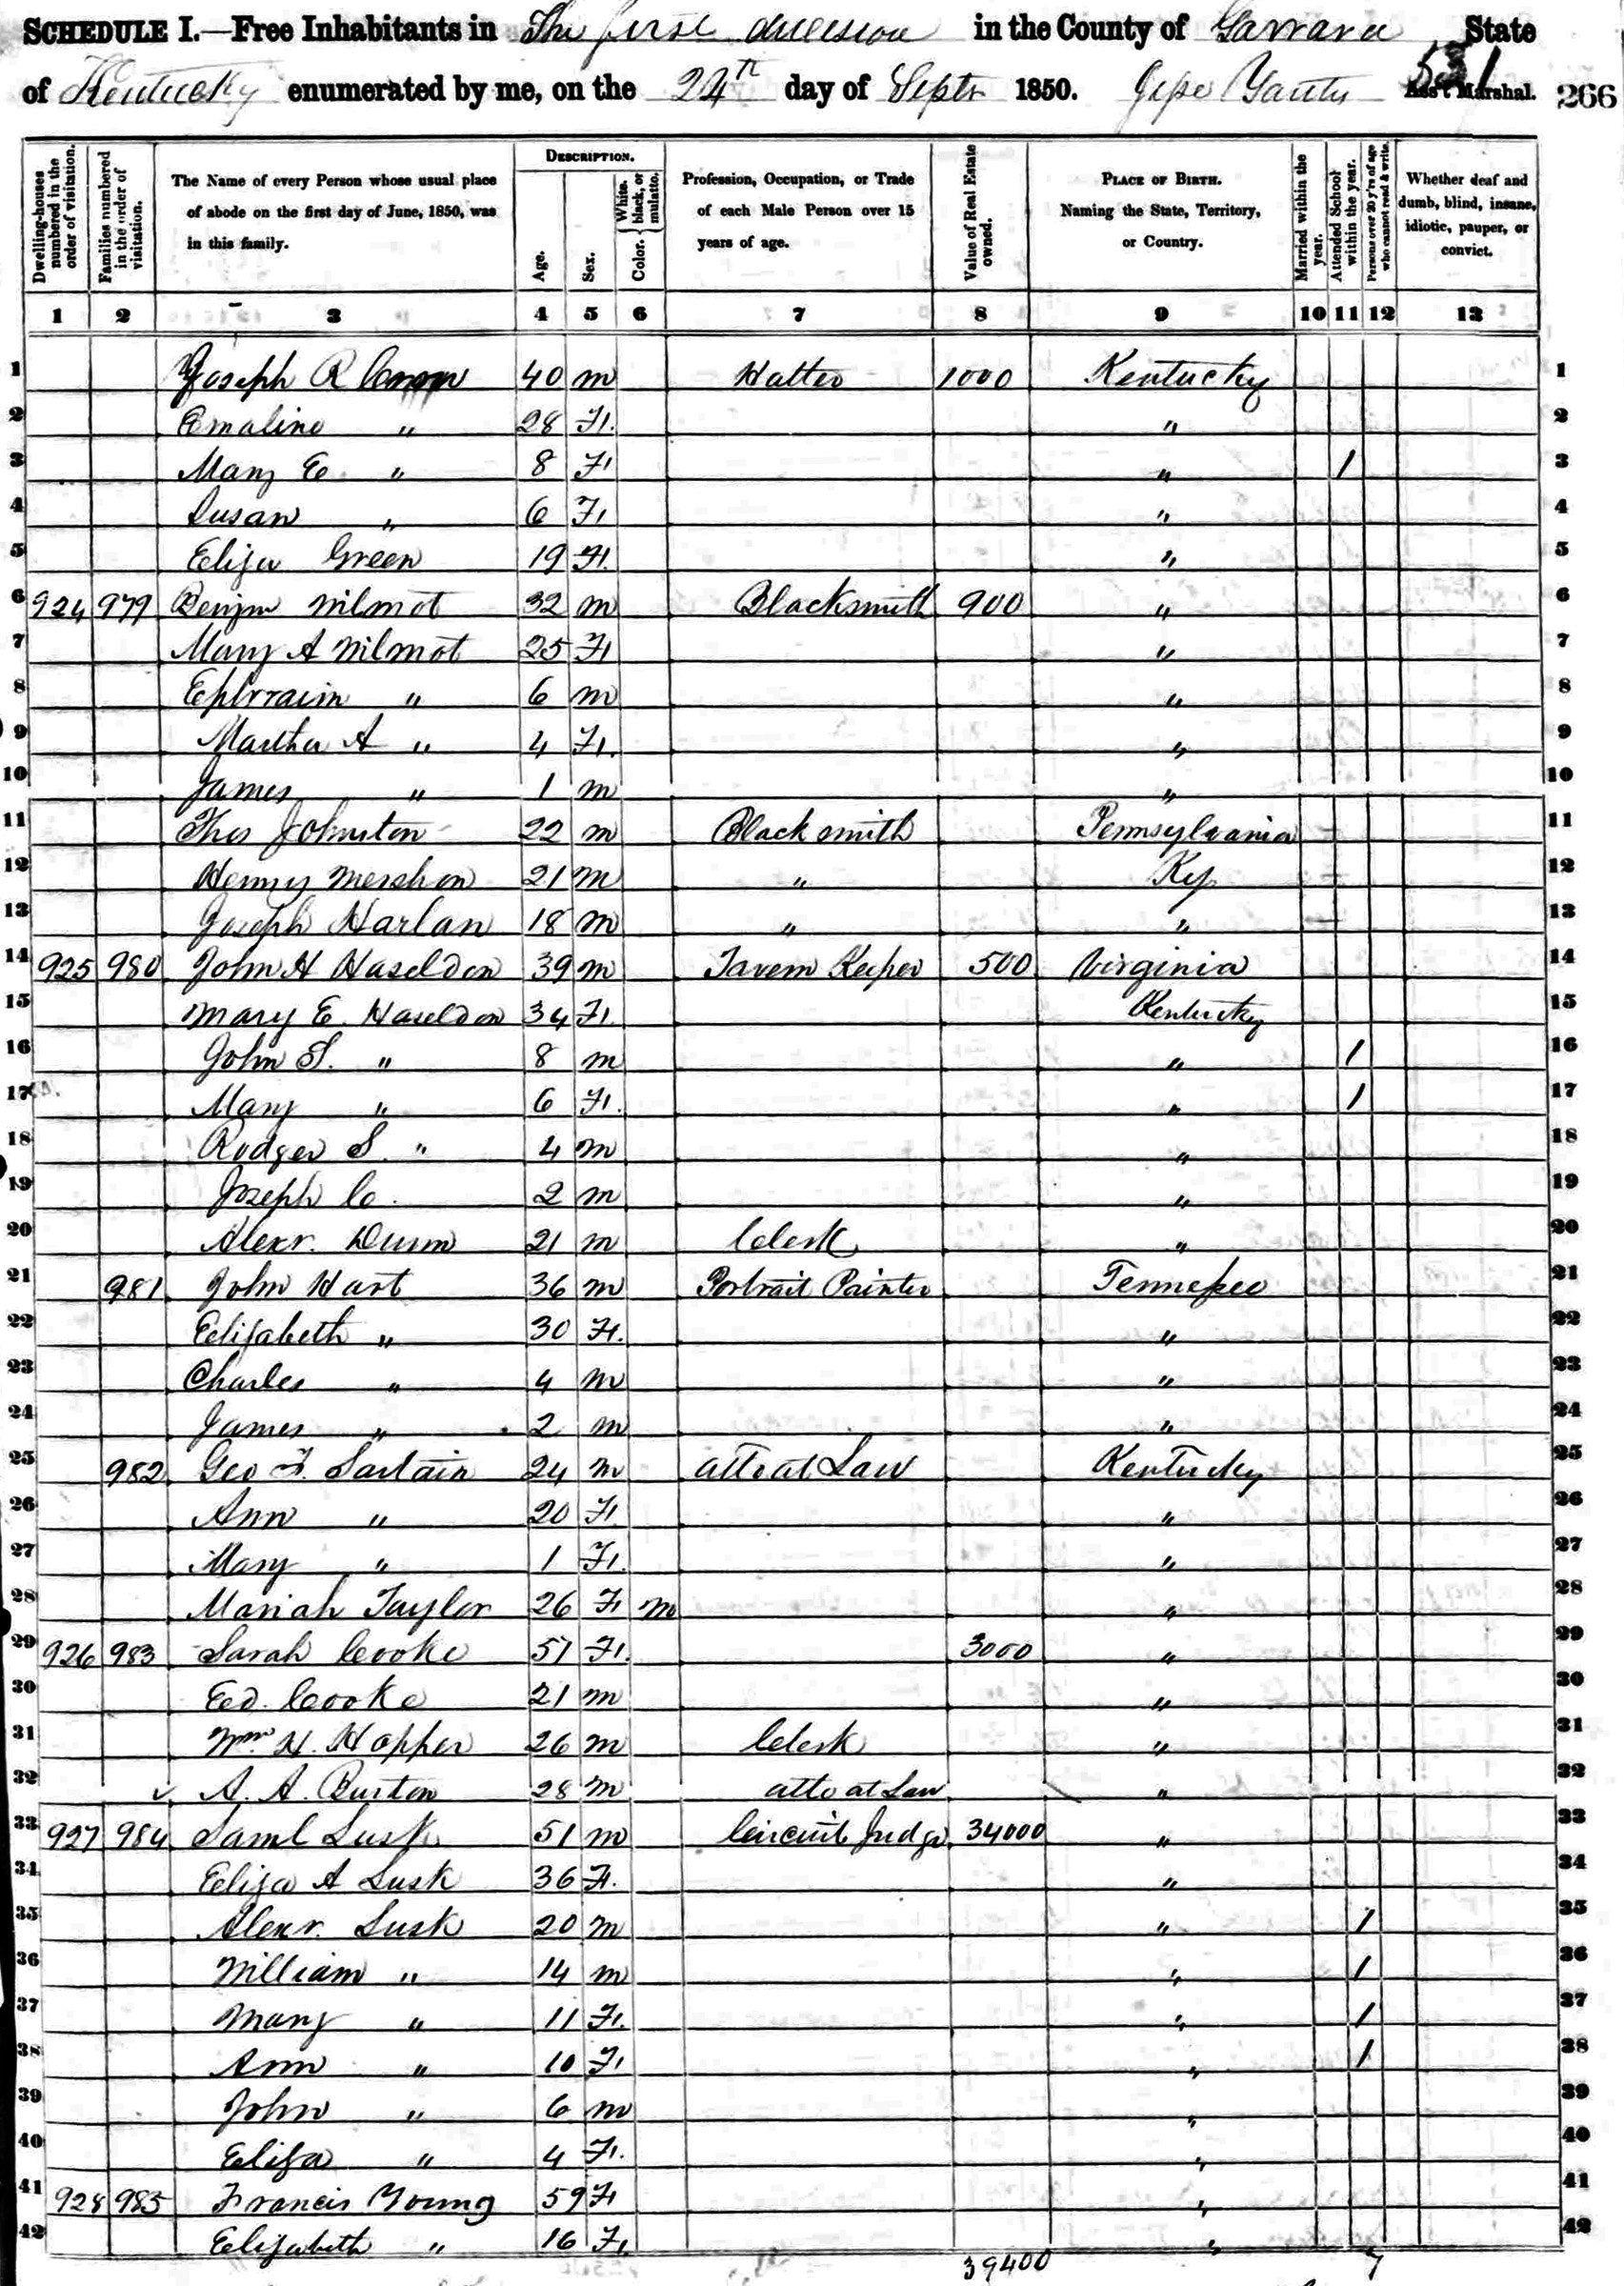 SCHEDULE I.—Free Inhabitants in The first division in the County of Garrard State
of Kentucky enumerated by me, on the 24th day of Septr 1850. Jesse Yantis Ass't Marshal. 266
531
Dwelling-houses numbered in the order of visitation.
Families numbered in the order of visitation.
The Name of every Person whose usual place of abode on the first day of June, 1850, was in this family.
DESCRIPTION.
Age.
Sex.
Color. White, black, or mulatto.
Profession, Occupation, or Trade of each Male Person over 15 years of age.
Value of Real Estate owned.
PLACE OF BIRTH. Naming the State, Territory, or Country.
Married within the year.
Attended School within the year.
Persons over 20 y'rs of age who cannot read & write.
Whether deaf and dumb, blind, insane, idiotic, pauper, or convict.
1 2 3 4 5 6 7 8 9 10 11 12 13
1 Joseph R 40 m Hatter 1000 Kentucky 1
2 Emaline " 28 F. " 2
3 Mary E " 8 F " / 3
4 Susan " 6 F " 4
5 Eliza Green 19 F. " 5
6 924 979 Benjm Wilmot 32 m Blacksmith 900 " 6
7 Mary A Wilmot 25 F " 7
8 Ephrraim " 6 m " 8
9 Martha A " 4 F. " 9
10 James " 1 m " 10
11 Thos Johnston 22 m Black smith Pennsylvania 11
12 Henry Mershon 21 m " Ky 12
13 Joseph Harlan 18 m " " 13
14 925 980 John H Haseldon 39 m Tavern Keeper 500 Virginia 14
15 Mary E. Haseldon 34 F. Kentucky 15
16 John S. " 8 m " / 16
17 Mary " 6 F. " / 17
18 Rodger S. " 4 m " 18
19 Joseph C. 2 m " 19
20 Alexr. Dunn 21 m Clerk " 20
21 981 John Hart 36 m Portrait Painter Tennessee 21
22 Elizabeth " 30 F. " 22
23 Charles " 4 m " 23
24 James " 2 m " 24
25 982 Geo F. Sartain 24 m atto at Law Kentucky 25
26 Ann " 20 F " 26
27 Mary " 1 F. " 27
28 Mariah Taylor 26 F m " 28
29 926 983 Sarah Cooke 51 F. 3000 " 29
30 Ed. Cooke 21 m " 30
31 Wm H. Hopper 26 m Clerk " 31
32 A. A. Burton 28 m atto at Law " 32
33 927 984 Saml Lusk 51 m Circuit Judge 34000 " 33
34 Eliza A Lusk 36 F. " 34
35 Alexr. Lusk 20 m " / 35
36 William " 14 m " / 36
37 Mary " 11 F. " / 37
38 Ann " 10 F. " / 38
39 John " 6 m " 39
40 Eliza " 4 F. " 40
41 928 985 Francis Young 59 F " 41
42 Elizabeth " 16 F. " 42
39400 7